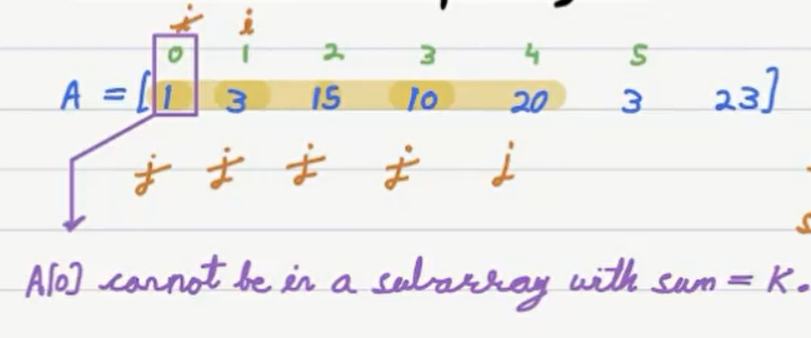 i i
0 1 2 3 4 5
A = [ 1 3 15 10 20 3 23 ]
j j j j j
A[0] cannot be in a subarray with sum = K.